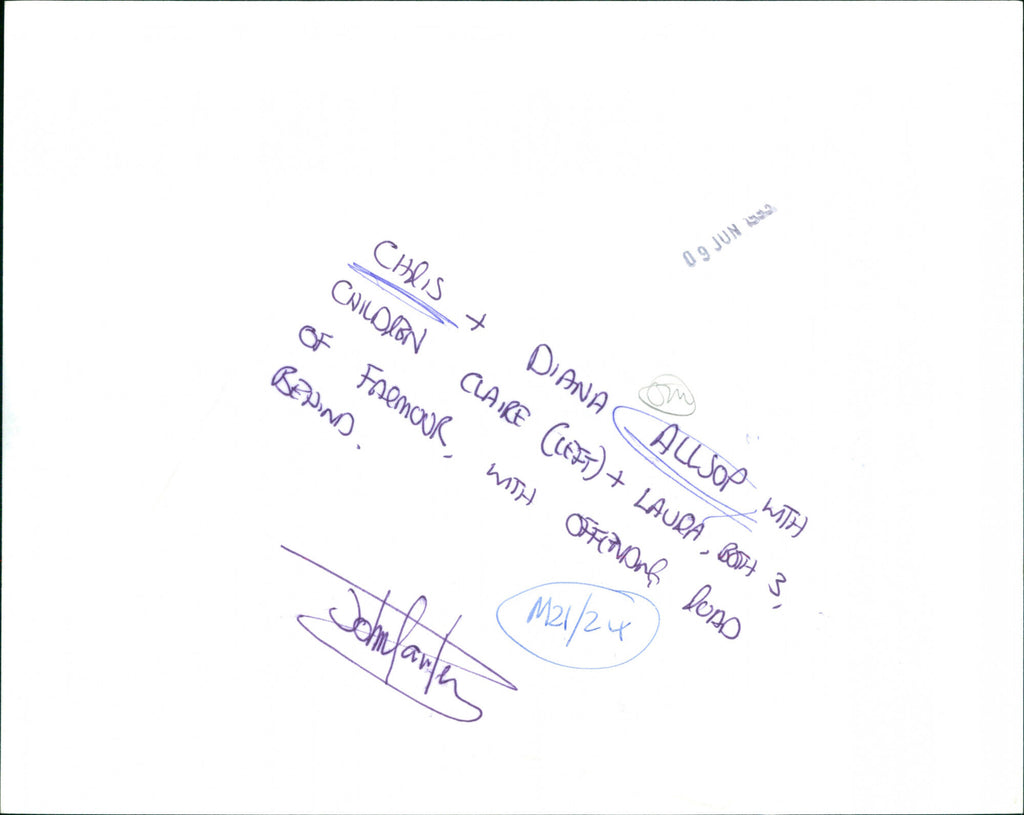 09 JUN
CHRIS + DIANA ALLSOP WITH
CHILDREN CLAIRE (LEFT) + LAURA, BOTH 3,
OF FARMOUR, WITH OFFENDING ROAD
BEHIND.
M21/24